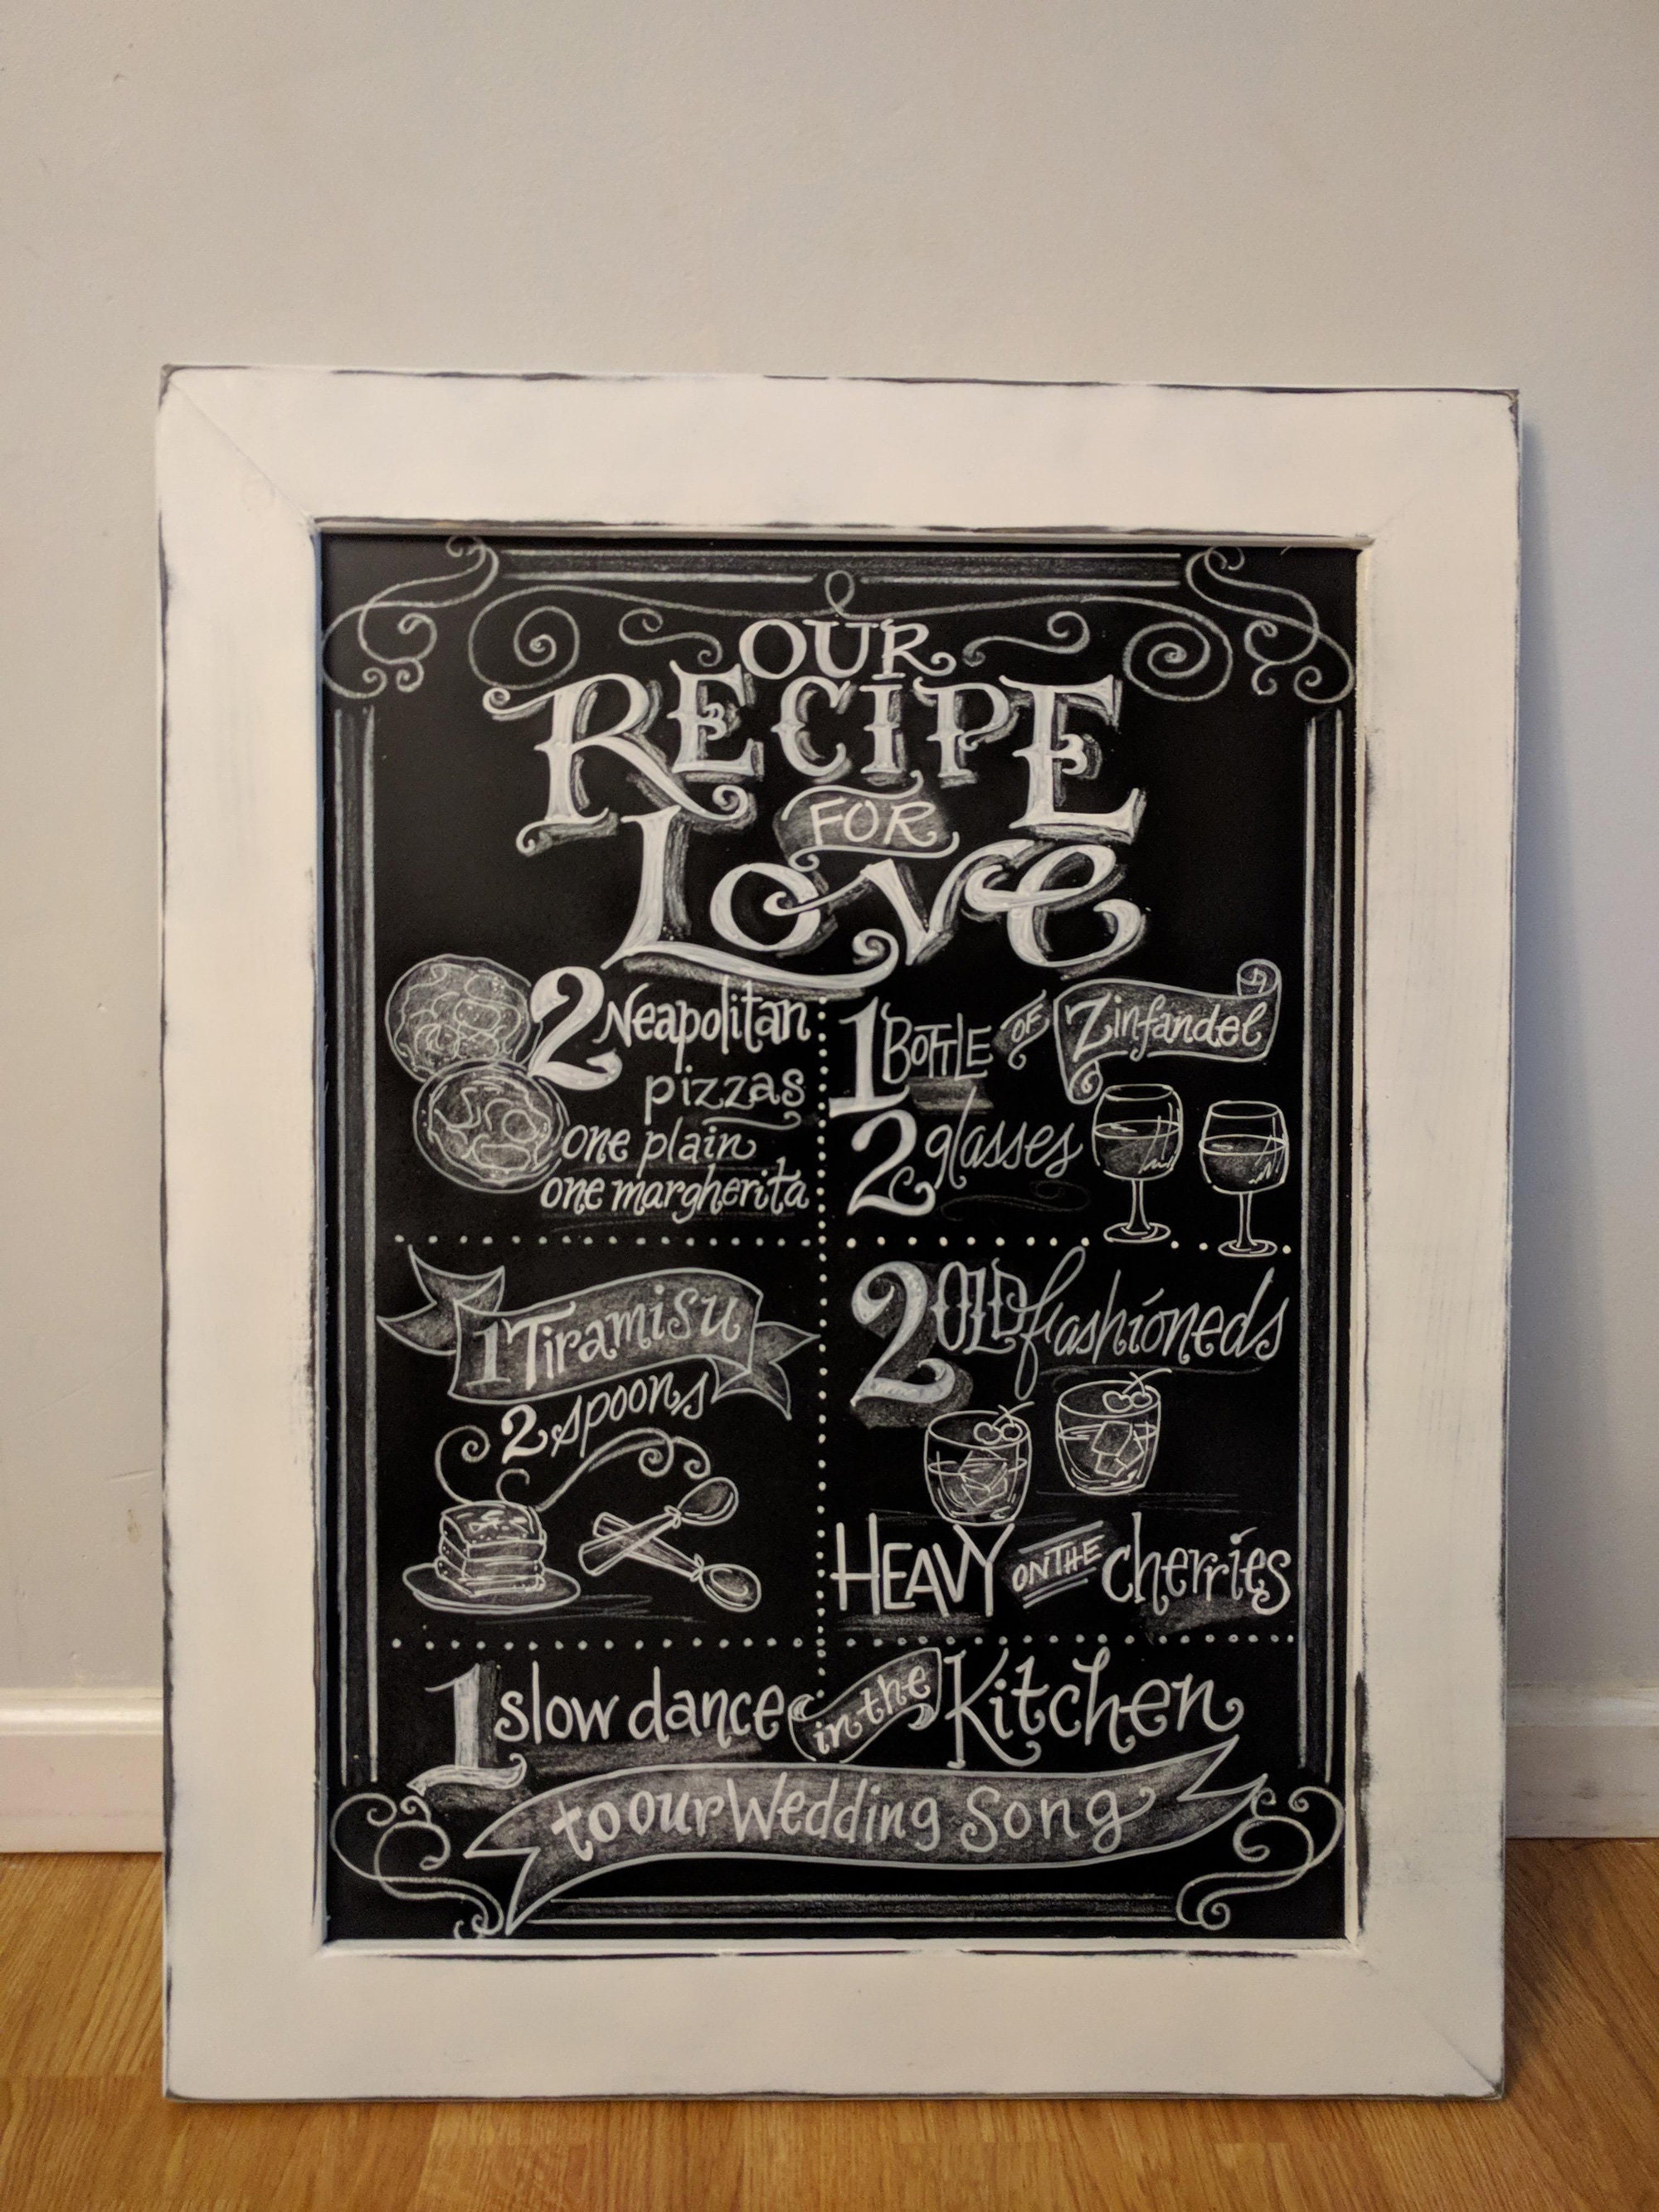 OUR
RECIPE
FOR
Love
2 Neapolitan
pizzas
one plain
one margherita
1 BOTTLE OF Zinfandel
2 glasses
1 Tiramisu
2 spoons
2 OLD fashioneds
HEAVY ON THE cherries
1 slow dance in the Kitchen
to our Wedding Song